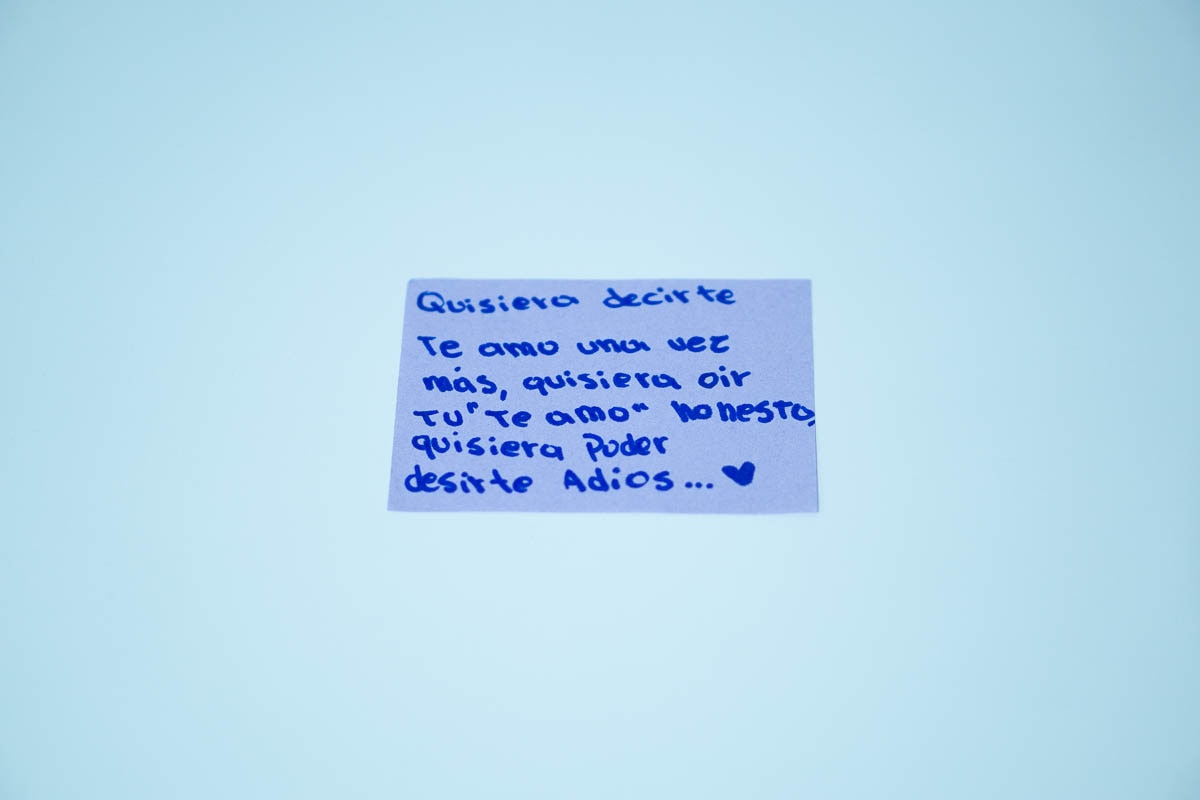 Quisiera decirte
Te amo una vez
más, quisiera oir
TU "Te amo" honesto,
quisiera Poder
desirte Adios... ♥